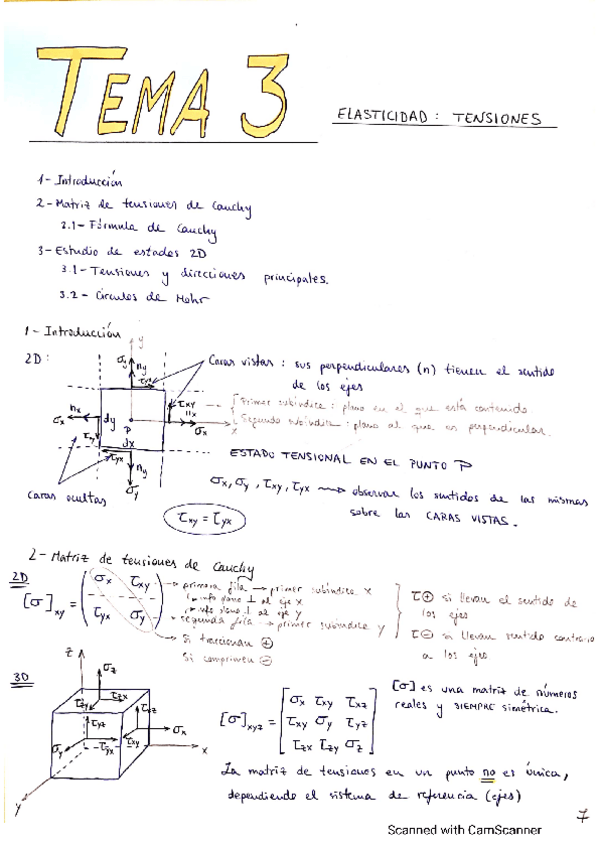 TEMA 3
ELASTICIDAD: TENSIONES
1- Introducción
2- Matriz de tensiones de Cauchy
2.1- Fórmula de Cauchy
3- Estudio de estados 2D
3.1- Tensiones y direcciones principales.
3.2- Círculos de Mohr
1- Introducción
2D:
y
σy
ny
τyx
Caras vistas: sus perpendiculares (n) tienen el sentido
de los ejes
nx
σx
dy
τxy
P
dx
τxy
nx
σx
x
Primer subíndice: plano en el que está contenido
Segundo subíndice: plano al que es perpendicular.
τyx
ny
σy
Caras ocultas
ESTADO TENSIONAL EN EL PUNTO P
σx, σy, τxy, τyx → observar los sentidos de las mismas
sobre las CARAS VISTAS.
τxy = τyx
2- Matriz de tensiones de Cauchy
2D
[σ]xy =
σx τxy
τyx σy
→ primera fila → primer subíndice x
→ info plano ⊥ al eje x
→ info plano ⊥ al eje y
→ segunda fila → primer subíndice y
→ Si traccionan ⊕
Si comprimen ⊖
τ⊕ si llevan el sentido de
los ejes
τ⊖ si llevan sentido contrario
a los ejes.
3D
z
σz
τzy
τzx
τyz
τxz
σy
τyx
τxy
σx
x
y
[σ]xyz =
σx τxy τxz
τxy σy τyz
τzx τzy σz
[σ] es una matriz de números
reales y SIEMPRE simétrica.
La matriz de tensiones en un punto no es única,
dependiendo el sistema de referencia (ejes)
7
Scanned with CamScanner